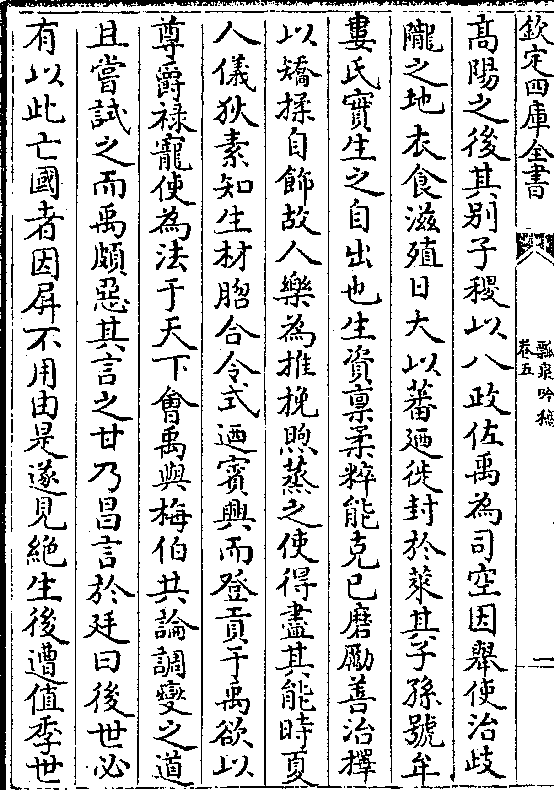 欽定四庫全書
瓢泉吟稿
卷五
一
高陽之後其别子稷以八政佐禹為司空因舉使治歧
隴之地衣食滋殖日大以蕃廼徙封於萊其子孫號牟
婁氏實生之自出也生資禀柔粹能克己磨勵善治擇
以矯揉自飾故人樂為推挽煦蒸之使得盡其能時夏
人儀狄素知生材脗合令式迺賓興而登貢于禹欲以
尊爵禄寵使為法于天下㑹禹與梅伯共論調燮之道
且嘗試之而禹頗惡其言之甘乃昌言於廷曰後世必
有以此亡國者因屏不用由是遂見絶生後遭值季世